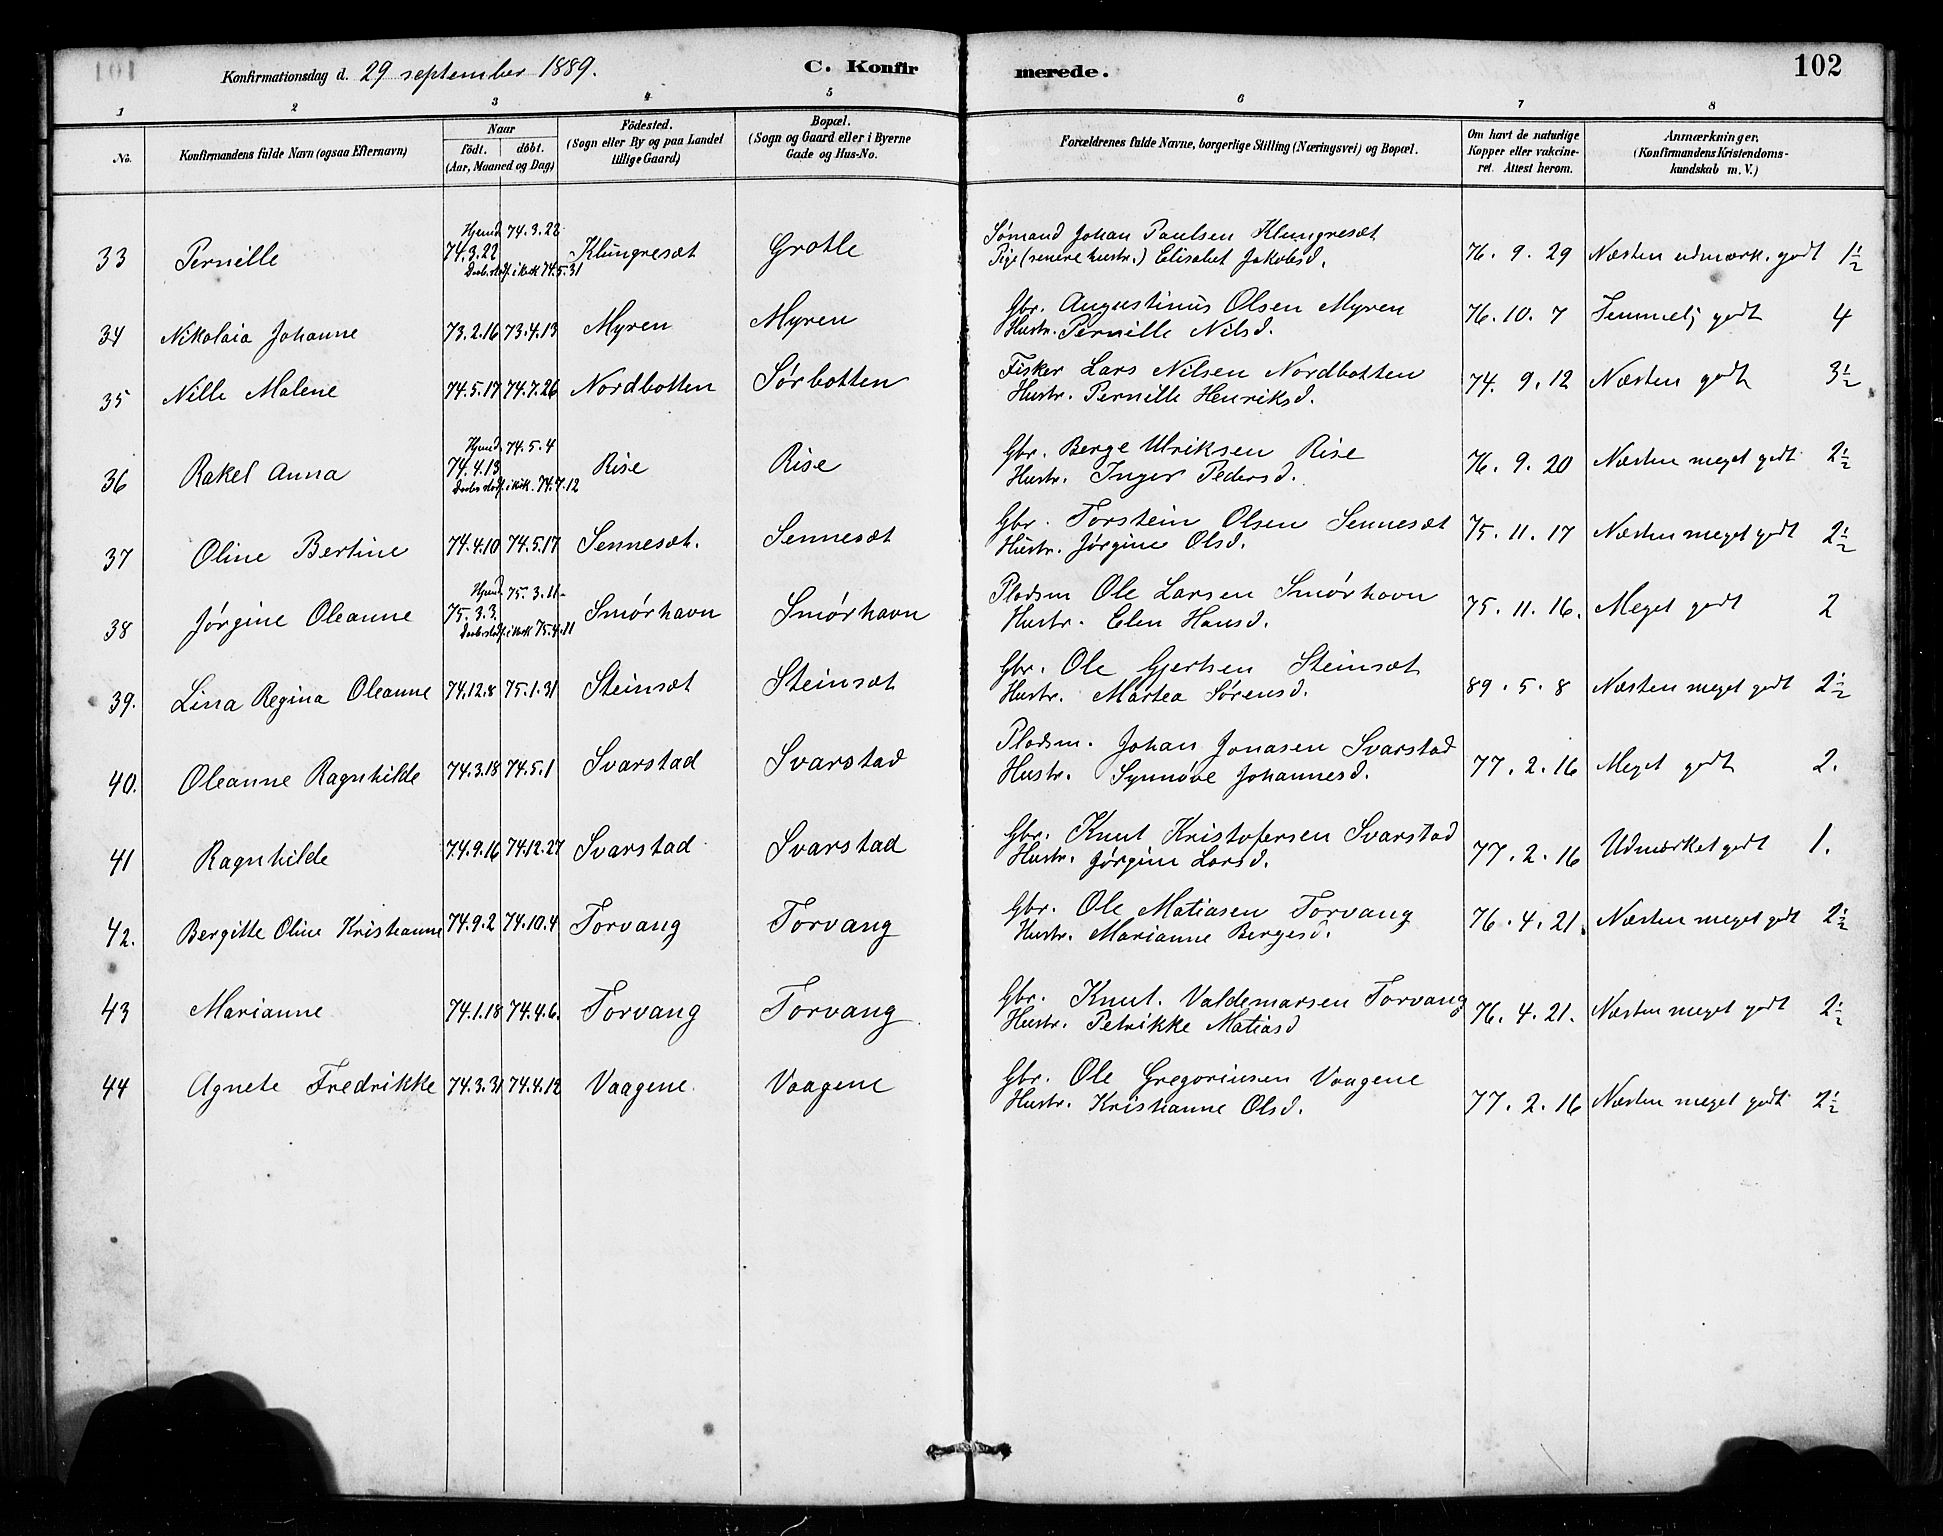 101
Konfirmationsdag d. 29 september 1889. C. Konfirmerede. 102
1 2 3 4 5 6 7 8
No. Konfirmandens fulde Navn (ogsaa Efternavn) Naar født. døbt. (Aar, Maaned og Dag) Födested. (Sogn eller By og paa Landet tillige Gaard) Bopæl. (Sogn og Gaard eller i Byerne Gade og Hus-No. Forældrenes fulde Navne, borgerlige Stilling (Næringsvei) og Bopæl. Om havt de naturlige Kopper eller vakcineret. Attest herom. Anmærkninger. (Konfirmandens Kristendomskundskab m. V.)
33 Pernille 74.3.22 Hjemd. 74.3.22 Daabs stadf. i kirk 74.5.31 Klungresæt Grotle Sømand Johan Paulsen Klungresæt 76.9.29 Næsten udmærk. godt 1½
Pige (senere hustr.) Elisabet Jakobsd.
34 Nikolaia Johanne 73.2.16 73.4.13 Myren Myren Gbr. Augustinus Olsen Myren 76.10.7 Temmelj godt 4
Hustr. Pernille Nilsd.
35 Nille Malene 74.5.17 74.7.26 Nordbotten Sørbotten Fisker Lars Nilsen Nordbotten 74.9.12 Næsten godt 3½
Hustr. Pernille Henriksd.
36 Rakel Anna 74.4.13 Hjemd. 74.5.4 Daabs stadf. i kirk. 74.7.12 Rise Rise Gbr. Berge Ulriksen Rise 76.9.20 Næsten meget godt 2½
Hustr. Inger Pedersd.
37 Oline Bertine 74.4.10 74.5.17 Sennesæt. Sennesæt Gbr. Torstein Olsen Sennesæt 75.11.17 Næsten meget godt 2½
Hustr. Jørgine Olsd.
38 Jørgine Oleanne 75.3.3. Hjemd. 75.3.11. Daabs stadf. i kirk 75.4.11 Smørhavn Smørhavn Pladsm Ole Larsen Smørhavn 75.11.16. Meget godt 2
Hustr. Elen Hansd.
39. Lina Regina Oleanne 74.12.8 75.1.31 Steinsæt Steinsæt Gbr. Ole Gjertsen Steinsæt 89.5.8 Næsten meget godt 2½
Hustr. Martea Sørensd.
40. Oleanne Ragnhilde 74.3.18 74.5.1 Svarstad Svarstad Pladsm. Johan Jonasen Svarstad 77.2.16 Meget godt 2.
Hustr. Synnøve Johannesd.
41 Ragnhilde 74.9.16 74.12.27 Svarstad Svarstad Gbr. Knut Kristofersen Svarstad 77.2.16 Udmærket godt 1.
Hustr. Jørgine Larsd.
42. Bergitte Oline Kristianne 74.9.2 74.10.4 Torvang Torvang Gbr. Ole Matiasen Torvang 76.4.21. Næsten meget godt 2½
Hustr. Marianne Bergesd.
43 Marianne 74.1.18 74.4.6. Torvang Torvang Gbr. Knut. Valdemarsen Torvang 76.4.21. Næsten meget godt 2½
Hustr. Petrikke Matiasd
44 Agnete Fredrikke 74.3.31 74.4.12 Vaagene Vaagene Gbr. Ole Gregoriusen Vaagene 77.2.16 Næsten meget godt 2½
Hustr. Kristianne Olsd.